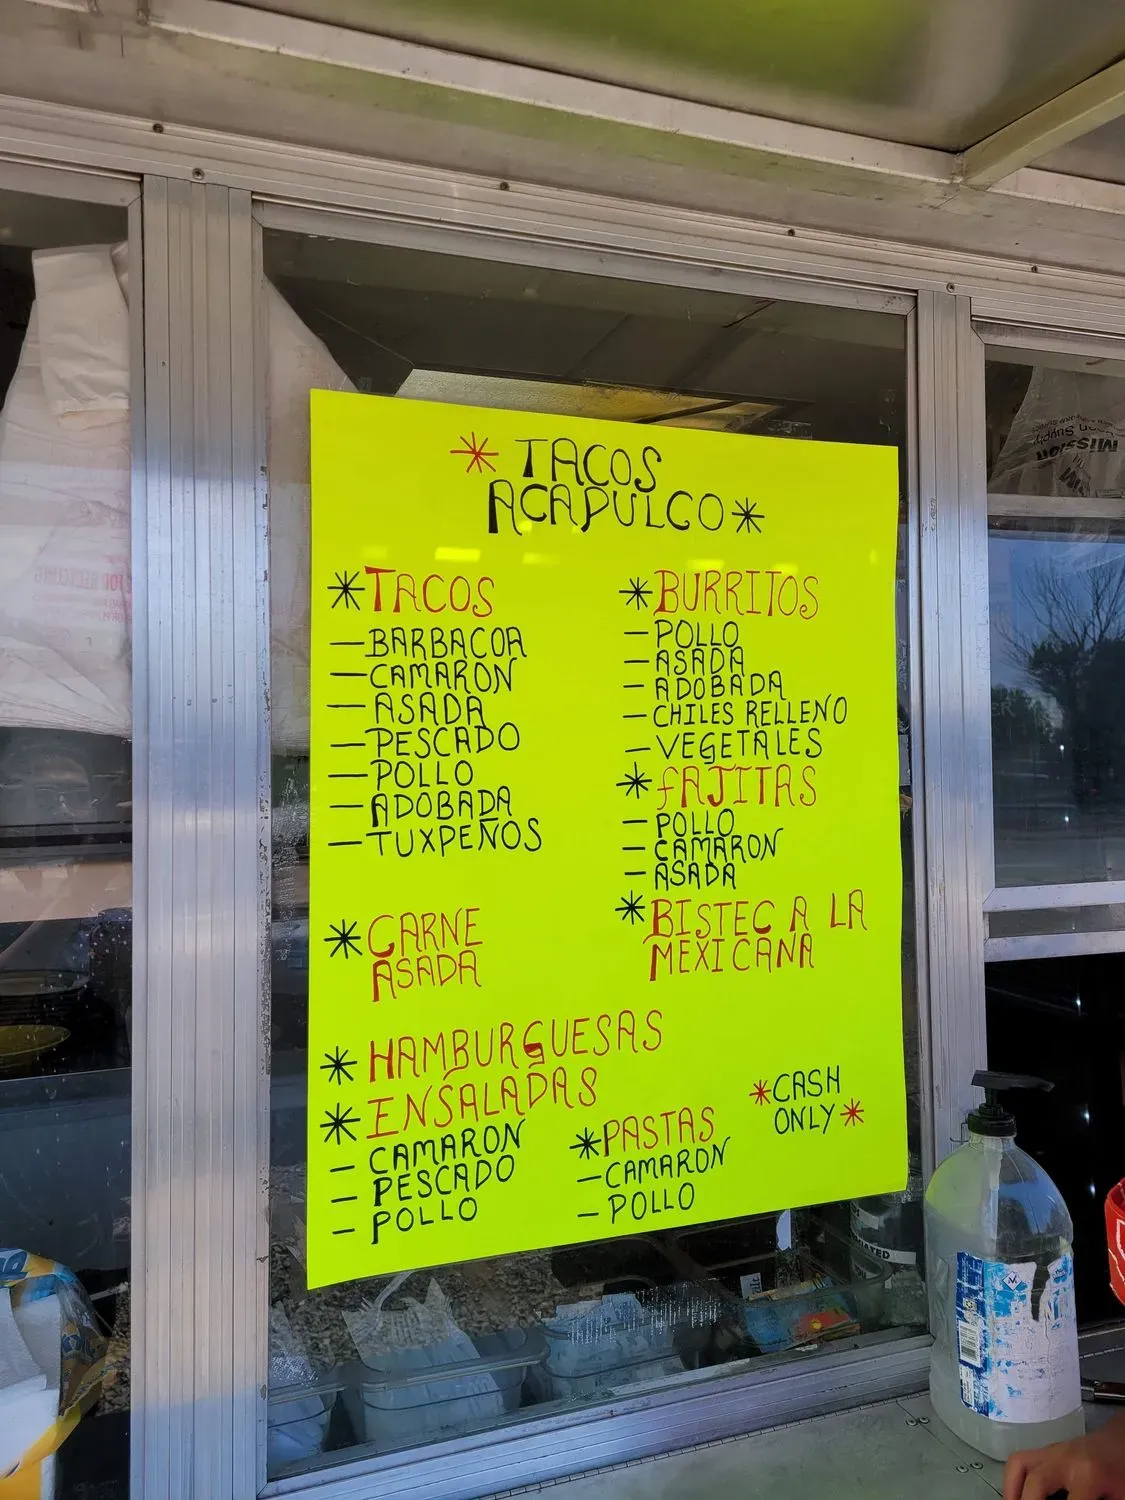 * TACOS
ACAPULCO *
* TACOS
— BARBACOA
— CAMARON
— ASADA
— PESCADO
— POLLO
— ADOBADA
— TUXPEÑOS
* CARNE
ASADA
* HAMBURGUESAS
* ENSALADAS
— CAMARON
— PESCADO
— POLLO
* BURRITOS
— POLLO
— ASADA
— ADOBADA
— CHILES RELLENO
— VEGETALES
* FAJITAS
— POLLO
— CAMARON
— ASADA
* BISTEC A LA
MEXICANA
* PASTAS
— CAMARON
— POLLO
* CASH
ONLY *
Mission